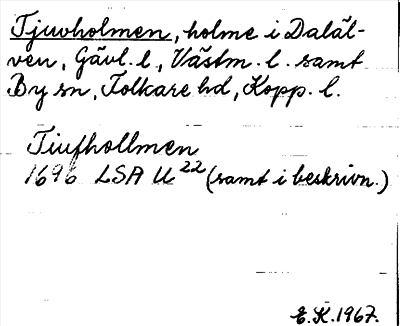 Tjuvholmen, holme i Daläl-
ven, Gävl. l., Västm. l. samt
By sn, Folkare hd, Kopp. l.
Tiufhollmen
1696 LSA U 22 (samt i beskrivn.)
E.K. 1967.